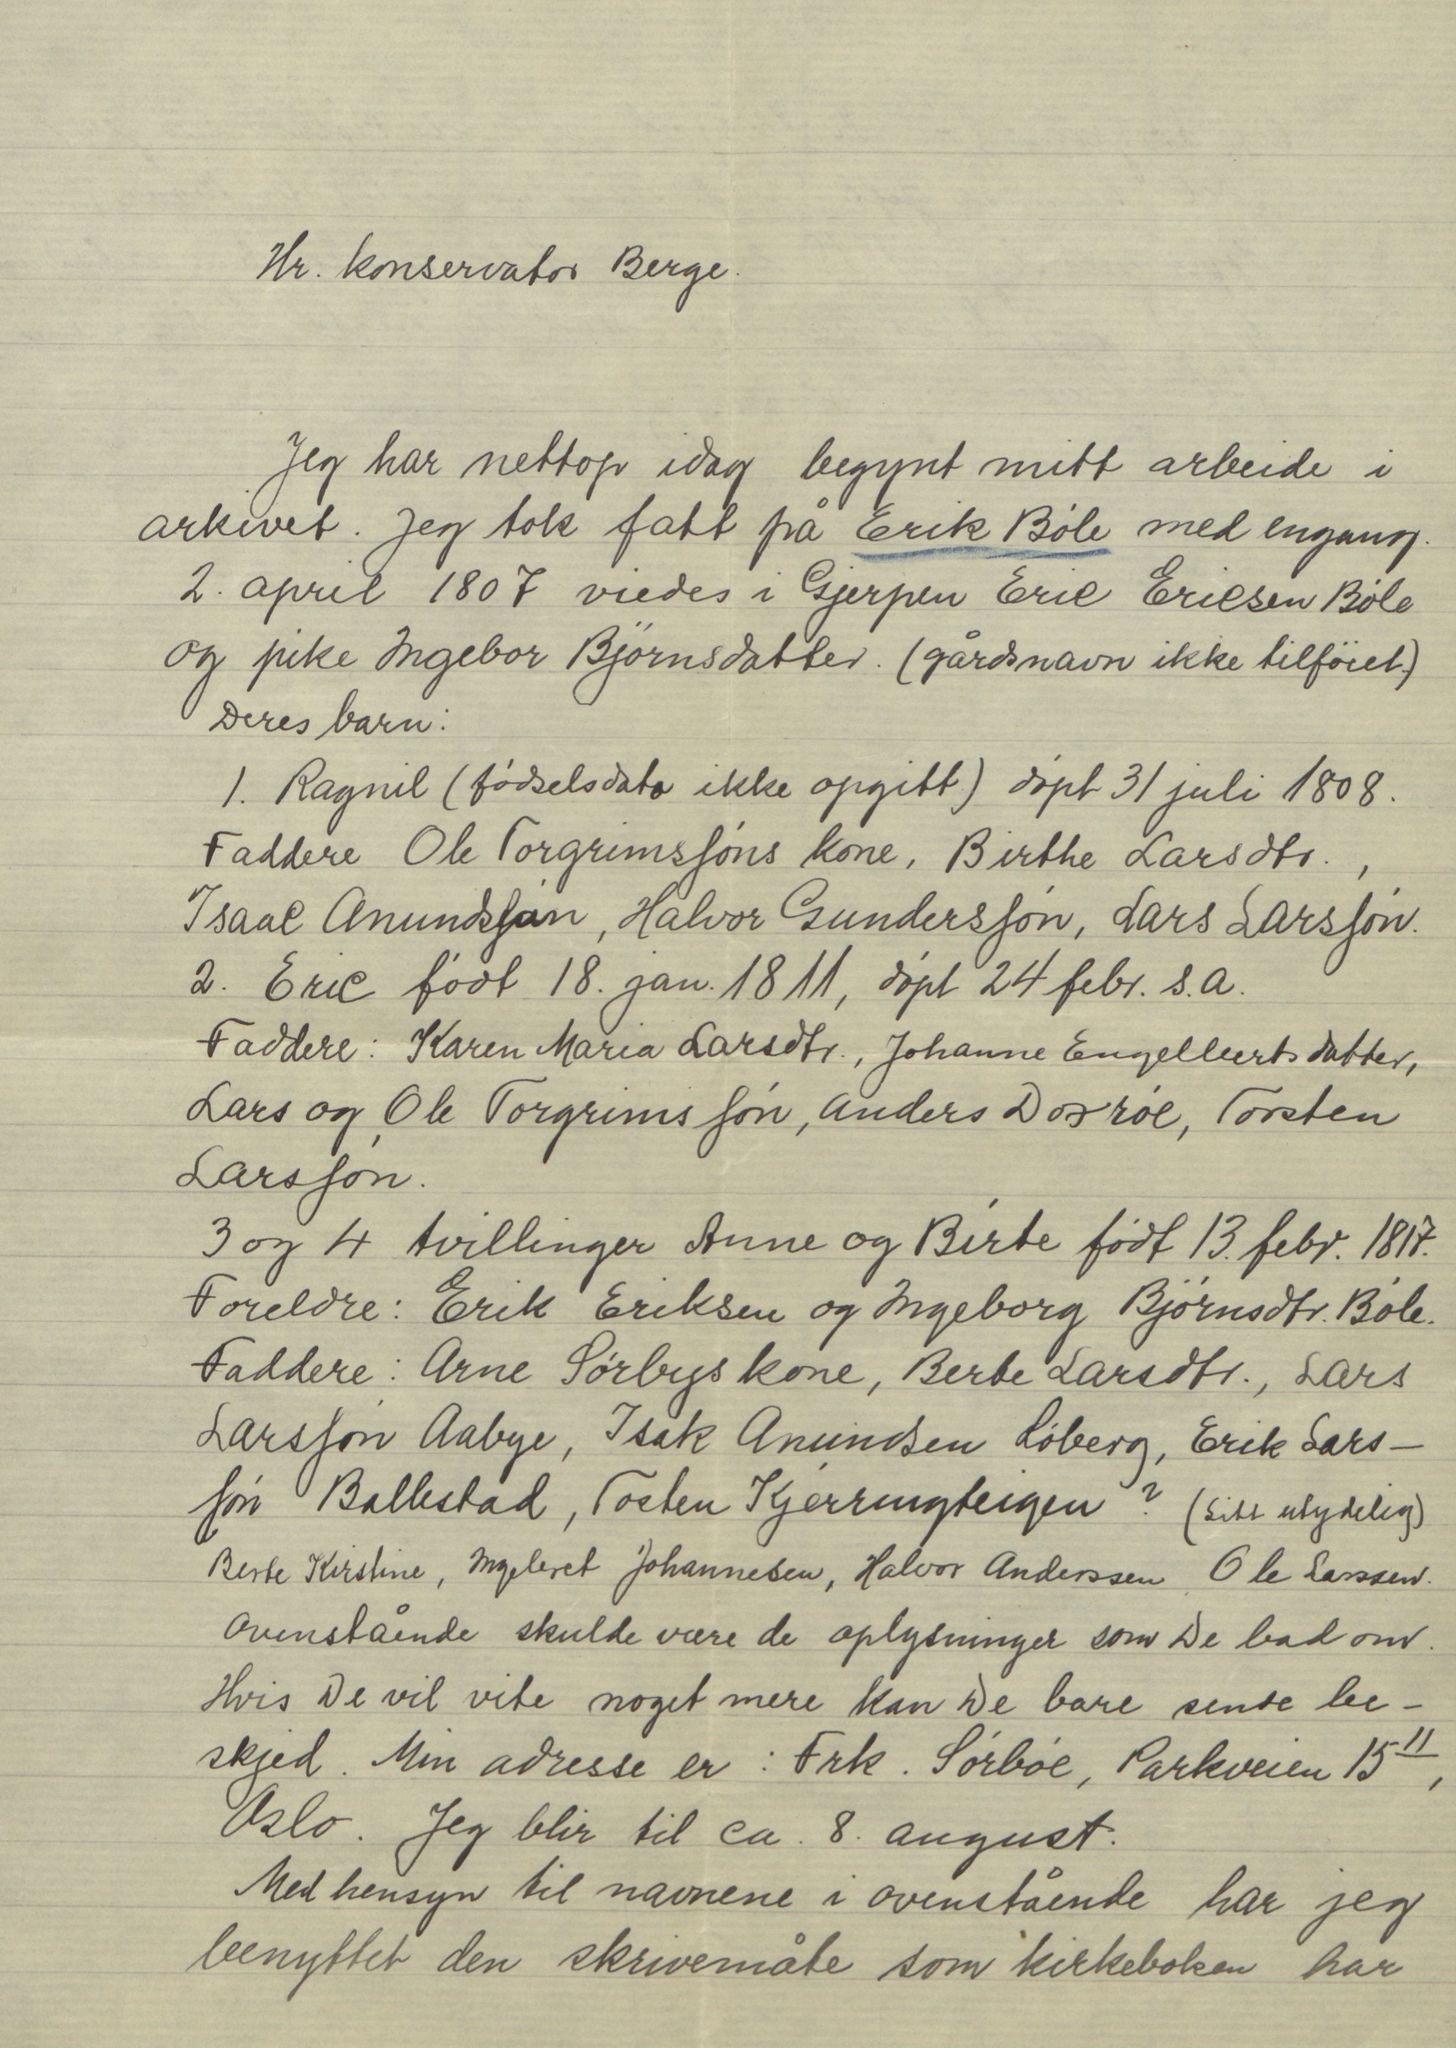 Hr. konservator Berge.
Jeg har nettop idag begynt mitt arbeide i
arkivet. Jeg tok fatt på Erik Böle med engang.
2. april 1807 viedes i Gjerpen Eric Ericsen Böle
og pike Ingebor Björnsdatter. (gårdsnavn ikke tilföiet.)
Deres barn:
1. Ragnil (födselsdato ikke opgitt) döpt 31 juli 1808.
Faddere Ole Torgrimssöns kone, Birthe Larsdtr.,
Isaac Anundssön, Halvor Gunderssön, Lars Larssön.
2. Eric födt 18. jan. 1811, döpt 24 febr. s.a.
Faddere: Karen Maria Larsdtr., Johanne Engelbertsdatter,
Lars og Ole Torgrimssön, Anders Doxröe, Torsten
Larssön.
3 og 4 tvillinger Anne og Birte födt 13. febr. 1817.
Foreldre: Erik Eriksen og Ingeborg Björnsdtr. Böle.
Faddere: Arne Sörbys kone, Berte Larsdtr., Lars
Larssön Aabye, Isak Anundsen Löberg, Erik Lars-
sön Ballestad, Tosten Kjerringteigen? (Litt utydelig)
Berte Kirstine, Ingebret Johannesen, Halvor Anderssen Ole Larssen.
Ovenstående skulde være de oplysninger som De bad om.
Hvis De vil vite noget mere kan De bare sende be-
skjed. Min adresse er: Frk. Sörböe, Parkveien 15 II,
Oslo. Jeg blir til ca. 8. august.
Med hensyn til navnene i ovenstående har jeg
benyttet den skrivemåte som kirkeboken har